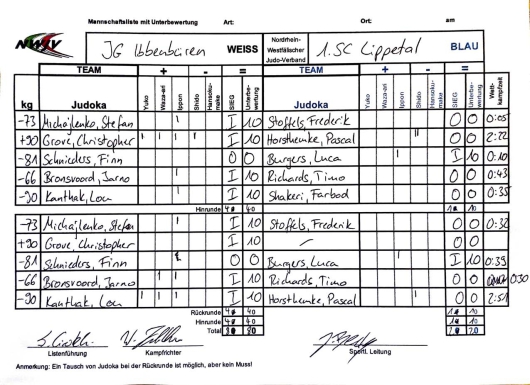 Mannschaftsliste mit Unterbewertung Art: Ort: am
NWJV JG Ibbenbüren WEISS Nordrhein-Westfälischer Judo-Verband 1. SC Lippetal BLAU
TEAM + - = TEAM + - =
kg Judoka Yuko Waza-ari Ippon Shido Hansoku-make SIEG Unterbewertung Judoka Yuko Waza-ari Ippon Shido Hansoku-make SIEG Unterbewertung Wettkampfzeit
-73 Michajlenko, Stefan I I 10 Stoffels, Frederik 0 0 0:05
+90 Grove, Christopher I I I I I 10 Horstkemke, Pascal II 0 0 2:22
-81 Schnieders, Finn 0 0 Burgers, Luca I I 10 0:10
-66 Bronsvoord, Jarno I I 10 Richards, Timo 0 0 0:43
-90 Kanthak, Lou I I 10 Shakeri, Farbod 0 0 0:35
Hinrunde 4 40 1 10
-73 Michajlenko, Stefan I I 10 Stoffels, Frederik 0 0 0:32
+90 Grove, Christopher I 10 — 0 0
-81 Schnieders, Finn 0 0 Burgers, Luca I I 10 0:39
-66 Bronsvoord, Jarno I I I 10 Richards, Timo 0 0 0:30
-90 Kanthak, Lou I I I I 10 Horstkemke, Pascal I 0 0 2:51
Rückrunde 4 40 1 10
Hinrunde 4 40 1 10
Total 8 80 2 20
Listenführung Kampfrichter Sportl. Leitung
Anmerkung: Ein Tausch von Judoka bei der Rückrunde ist möglich, aber kein Muss!